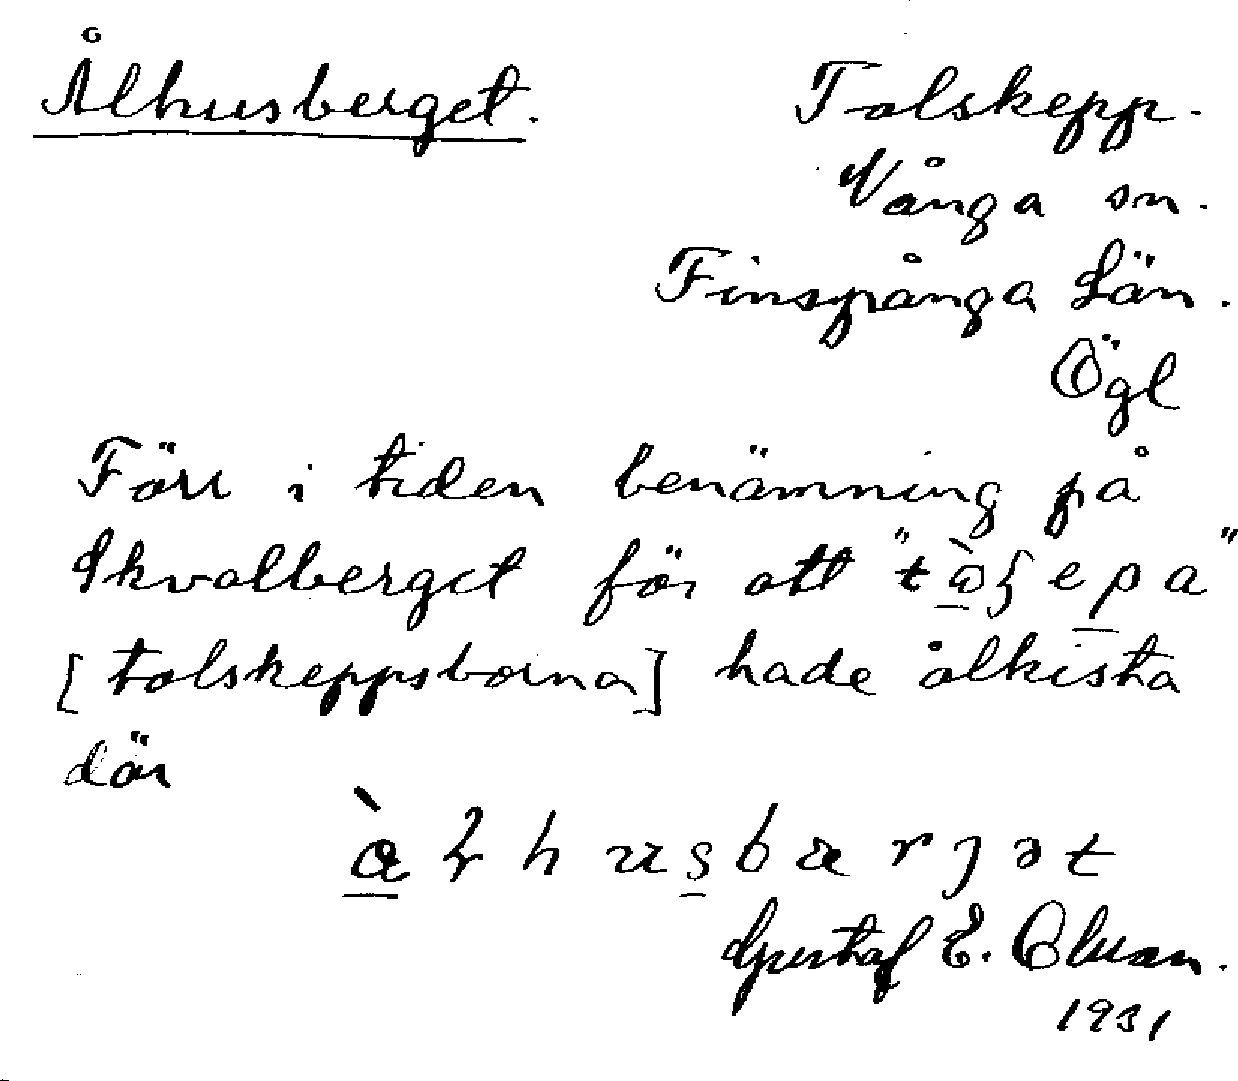 Ålhusberget.
Tolskepp.
Vånga sn.
Finspånga Län.
Ögl
Förr i tiden benämning på
Skvalberget för att "
[tolskeppsborna] hade ålkista
där
Gustaf E.
1931